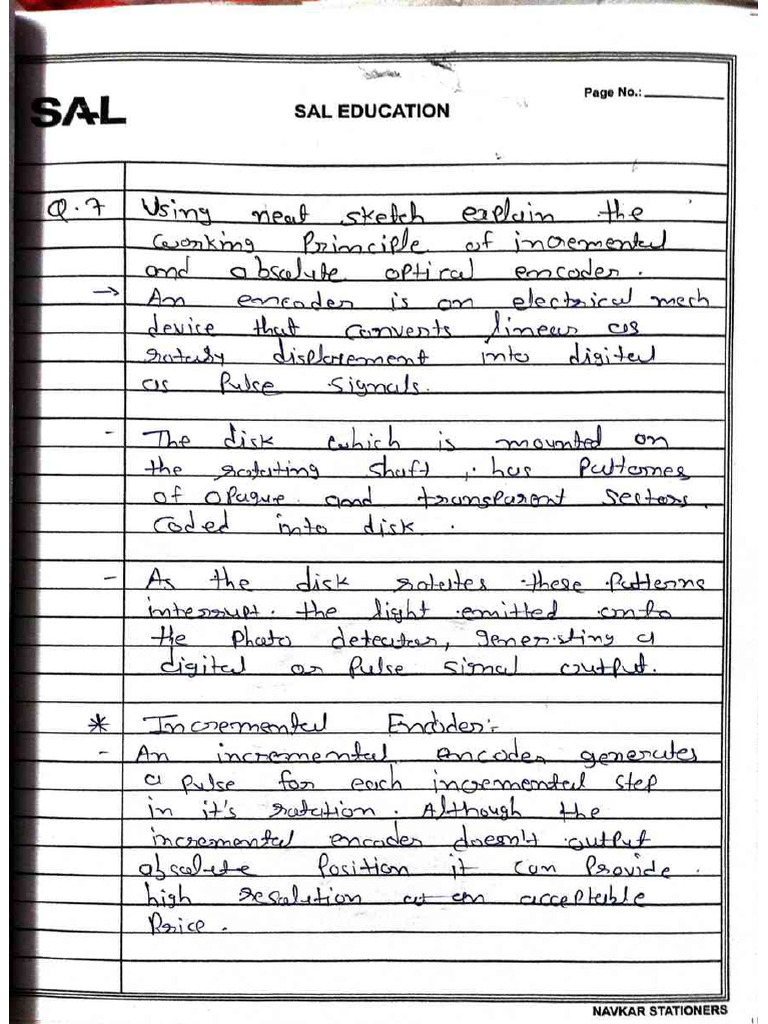 Page No.:
SAL
SAL EDUCATION
Q.7 Using neat sketch explain the
working Principle of incremental
and absolute optical encoder.
→ An encoder is an electrical mech
device that converts linear or
rotary displacement into digital
or Pulse signals.
- The disk which is mounted on
the rotating shaft, has Patternes
of opaque and transparent sectors
coded into disk.
- As the disk rotates these Patterns
interrupt the light emitted onto
the Photo detector, generating a
digital or Pulse signal output.
* Incremental Encoder:-
- An incremental encoder generates
a pulse for each incremental step
in it's rotation. Although the
incremental encoder doesn't output
absolute Position it can Provide
high resolution at an acceptable
Price.
NAVKAR STATIONERS